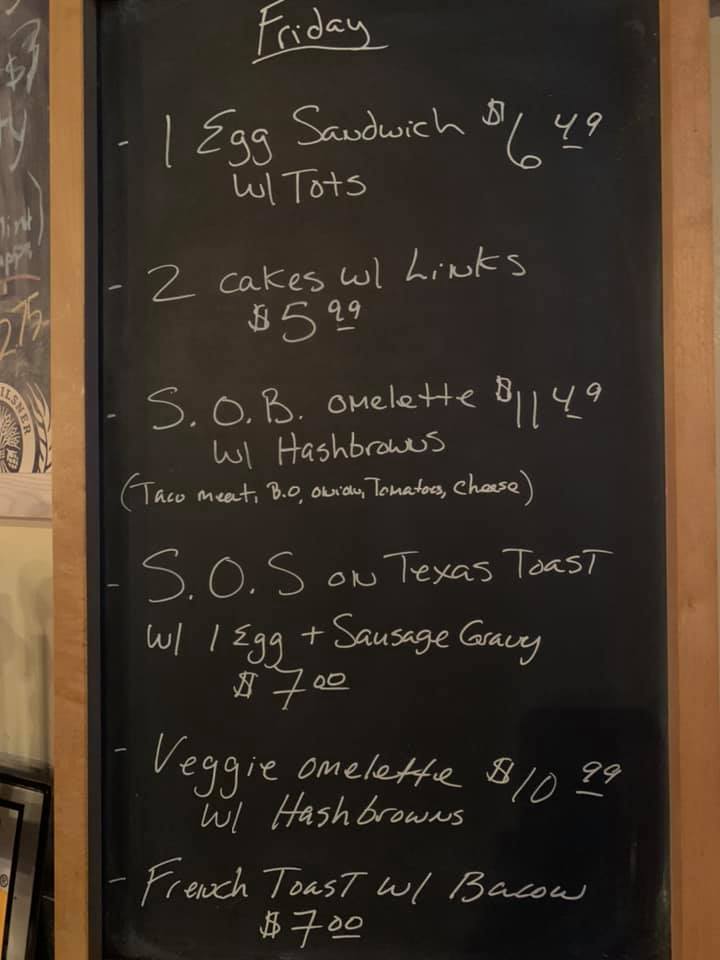 Friday
- 1 Egg Sandwich $6.49
w/ Tots
- 2 cakes w/ Links
$5.99
- S.O.B. omelette $11.49
w/ Hashbrowns
(Taco meat, B.O, onion, Tomatoes, cheese)
- S.O.S on Texas Toast
w/ 1 Egg + Sausage Gravy
$7.00
- Veggie omelette $10.99
w/ Hashbrowns
- French Toast w/ Bacon
$7.00
$3
2.75
PILSNER